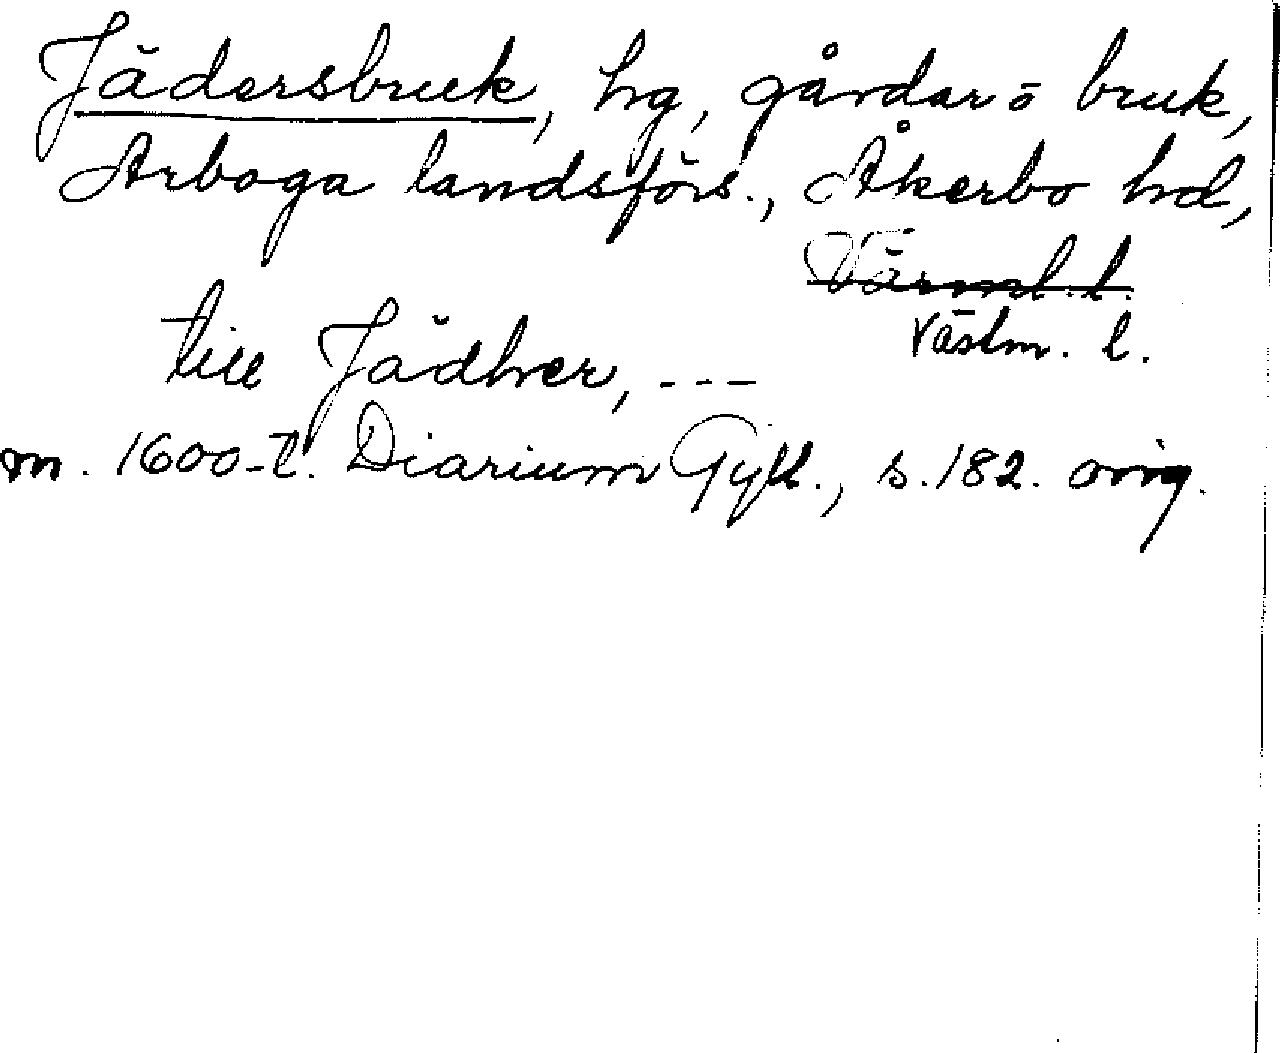 Jädersbruk, hg, gårdar o bruk,
Arboga landsförs., Åkerbo hd,
Värml. l.
Västm. l.
till Jädher, ---
m. 1600-t. Diarium Gyll., s. 182. orig.